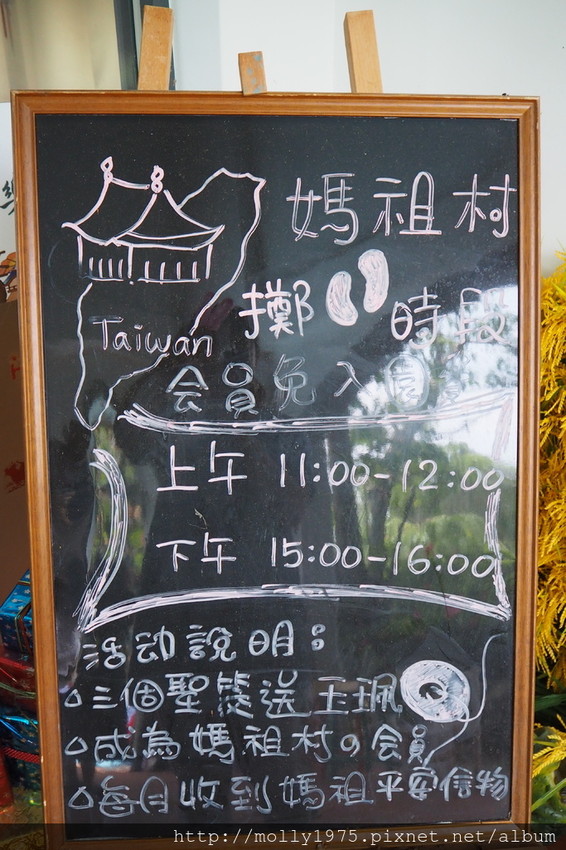 媽祖村
Taiwan
擲 時段
会員免入園
上午 11:00-12:00
下午 15:00-16:00
活动說明：
△三個聖筊送玉珮
△成為媽祖村の会員
△每月收到媽祖平安信物
http://molly1975.pixnet.net/album